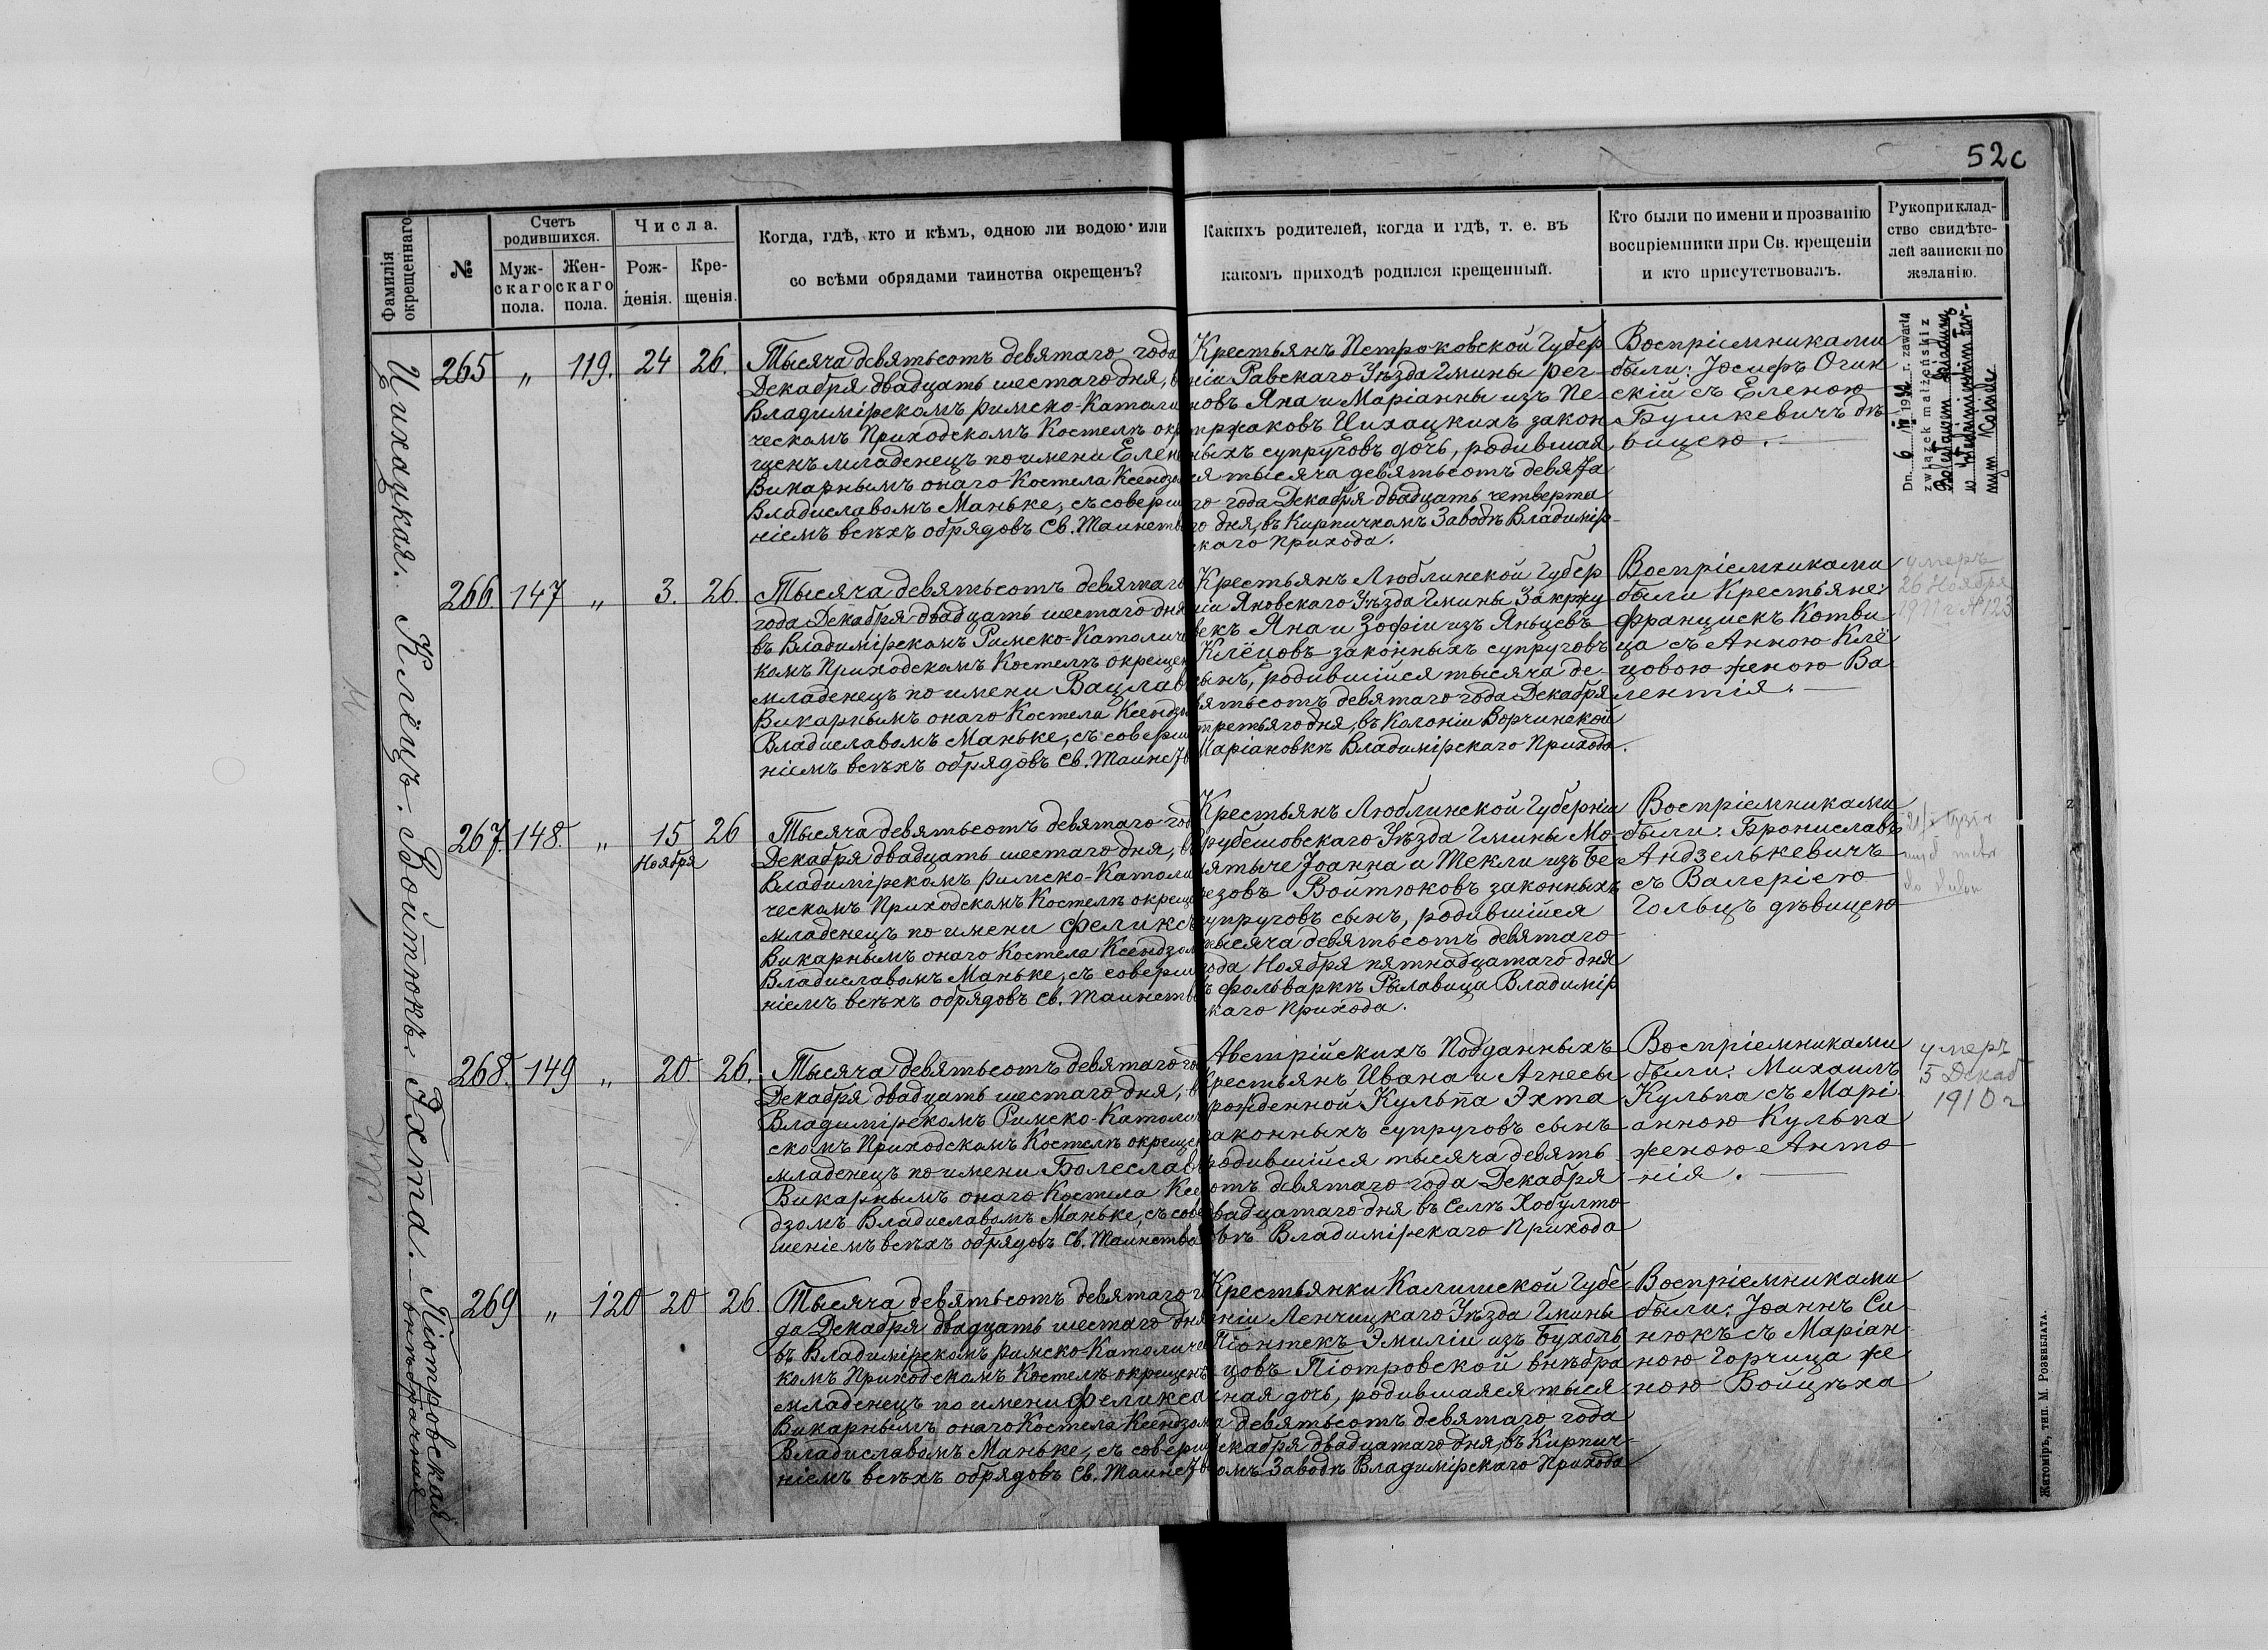 52с
Фамилія
окрещеннаго
№
Счетъ
родившихся.
Муж-
скаго
пола.
Жен-
скаго
пола.
Числа.
Рож-
денія.
Кре-
щенія.
Когда, гдѣ, кто и кѣмъ, одною ли водою или
со всѣми обрядами таинства окрещенъ?
Какихъ родителей, когда и гдѣ, т. е. въ
какомъ приходѣ родился крещенный.
Кто были по имени и прозванію
воспріемники при Св. крещеніи
и кто присутствовалъ.
Рукоприклад-
ство свидѣте-
лей записки по
желанію.
Цихацкая.
265 „ 119. 24 26.
Тысяча девятьсотъ девятаго года
Декабря двадцать шестаго дня, въ
Владимірскомъ Римско-Католи
ческомъ Приходскомъ Костелѣ окре
щенъ младенецъ по имени Елена
Викарнымъ онаго Костела Ксендзом
Владиславомъ Маньке, съ соверше
ніемъ всѣхъ обрядовъ Св. Таинства
Крестьянъ Петроковской Губер
ніи Равскаго Уѣзда Гмины Рег-
новъ Яна и Маріанны изъ Пе-
тржаковъ Цихацкихъ закон
ныхъ супруговъ дочь, родившая
ся тысяча девятьсотъ девята
го года Декабря двадцать четверта
го дня, въ Кирпичномъ Заводѣ Владимір-
скаго Прихода.
Воспріемниками
были: Іосифъ Огин
скій съ Еленою
Бушкевичъ дѣ
вицею.
Dn. 6 r. zawarła
związek małżeński z
Bolesławem
w Włodzimierskim Far-
nym Kościele
Клёцъ.
266. 147 „ 3. 26.
Тысяча девятьсотъ девятаго
года Декабря двадцать шестаго дня
въ Владимірскомъ Римско-Католичес
комъ Приходскомъ Костелѣ окрещен
младенецъ по имени Вацлав
Викарнымъ онаго Костела Ксендзом
Владиславомъ Маньке, съ соверше
ніемъ всѣхъ обрядовъ Св. Таинства
Крестьянъ Люблинской Губер
ніи Яновскаго Уѣзда Гмины Закржу
векъ Яна и Зофіи изъ Яньцевъ
Клёцовъ законныхъ супруговъ
сынъ, родившійся тысяча де-
вятьсотъ девятаго года Декабря
третьяго дня, въ Колоніи Ворчинской
Маріановкѣ Владимірскаго Прихода.
Воспріемниками
были Крестьяне:
Францискъ Котви
ца съ Анною Клё
цовою женою Ва
лентія.
умеръ
26 Ноября
Войтюкъ.
267. 148. „ 15 26
Ноября
Тысяча девятьсотъ девятаго год
Декабря двадцать шестаго дня, въ
Владимірскомъ Римско-Католи
ческомъ Приходскомъ Костелѣ окрещен
младенецъ по имени Феликсъ
Викарнымъ онаго Костела Ксендзом
Владиславомъ Маньке, съ соверше
ніемъ всѣхъ обрядовъ Св. Таинства
Крестьянъ Люблинской Губерніи
Грубешовскаго Уѣзда Гмины Мо-
нятыче Іоанна и Текли изъ Бе
резовъ Войтюковъ законныхъ
супруговъ сынъ, родившійся
тысяча девятьсотъ девятаго
года Ноября пятнадцатаго дня
въ Фольваркѣ Рылавица Владимір
скаго Прихода.
Воспріемниками
были: Брониславъ
Андзелькевичъ
съ Валеріею
Гольцъ дѣвицею
Эхта.
268. 149 „ 20. 26.
Тысяча девятьсотъ девятаго го
Декабря двадцать шестаго дня, въ
Владимірскомъ Римско-Католиче
скомъ Приходскомъ Костелѣ окрещен
младенецъ по имени Болеслав
Викарнымъ онаго Костела Ксен
дзомъ Владиславомъ Маньке, съ совер
шеніемъ всѣхъ обрядовъ Св. Таинства
Австрійскихъ Подданныхъ
Крестьянъ Ивана и Агнесы
рожденной Кульпа Эхта
законныхъ супруговъ сынъ
родившійся тысяча девять
сотъ девятаго года Декабря
двадцатаго дня въ Селѣ Хобулто
вѣ Владимірскаго Прихода
Воспріемниками
были: Михаилъ
Кульпа съ Марі
анною Кульпа
женою Анто
нія.
умеръ
5 Декаб
1910 г
Піотровская
внѣбрачная
269 „ 120 20 26.
Тысяча девятьсотъ девятаго го
да Декабря двадцать шестаго дня
въ Владимірскомъ Римско-Католичес
комъ Приходскомъ Костелѣ окрещенъ
младенецъ по имени Феликса
Викарнымъ онаго Костела Ксендзом
Владиславомъ Маньке, съ соверше
ніемъ всѣхъ обрядовъ Св. Таинства
Крестьянки Калишской Губе
рніи Ленчицкаго Уѣзда Гмины
Піонтекъ Эмиліи изъ Бухоль
цовъ Піотровской внѣбра
чная дочь, родившаяся тыся
ча девятьсотъ девятаго года
Декабря двадцатаго дня, въ Кирпич-
номъ Заводѣ Владимірскаго Прихода
Воспріемниками
были: Іоаннъ Си
нюкъ съ Маріан
ною Горчица же
ною Войцѣха
Житоміръ, тип. М. Розенблата.